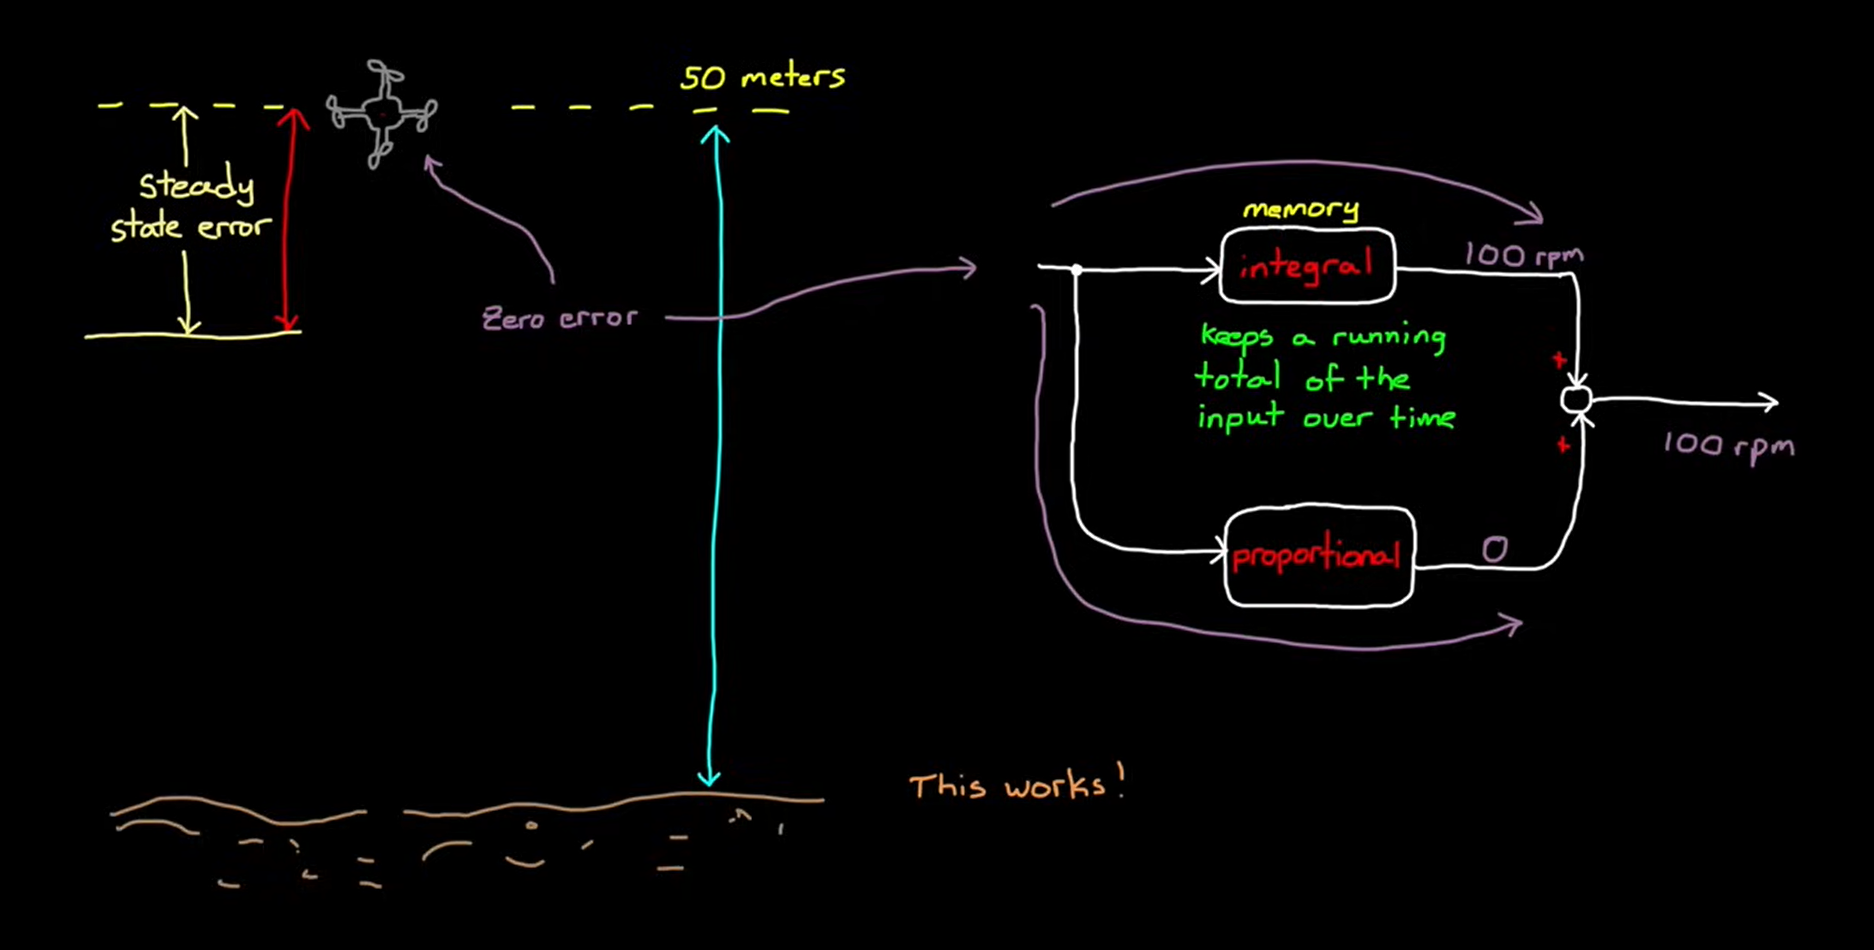 50 meters
steady
state error
Zero error
memory
integral
100 rpm
keeps a running
total of the
input over time
+
+
100 rpm
proportional
0
This works!